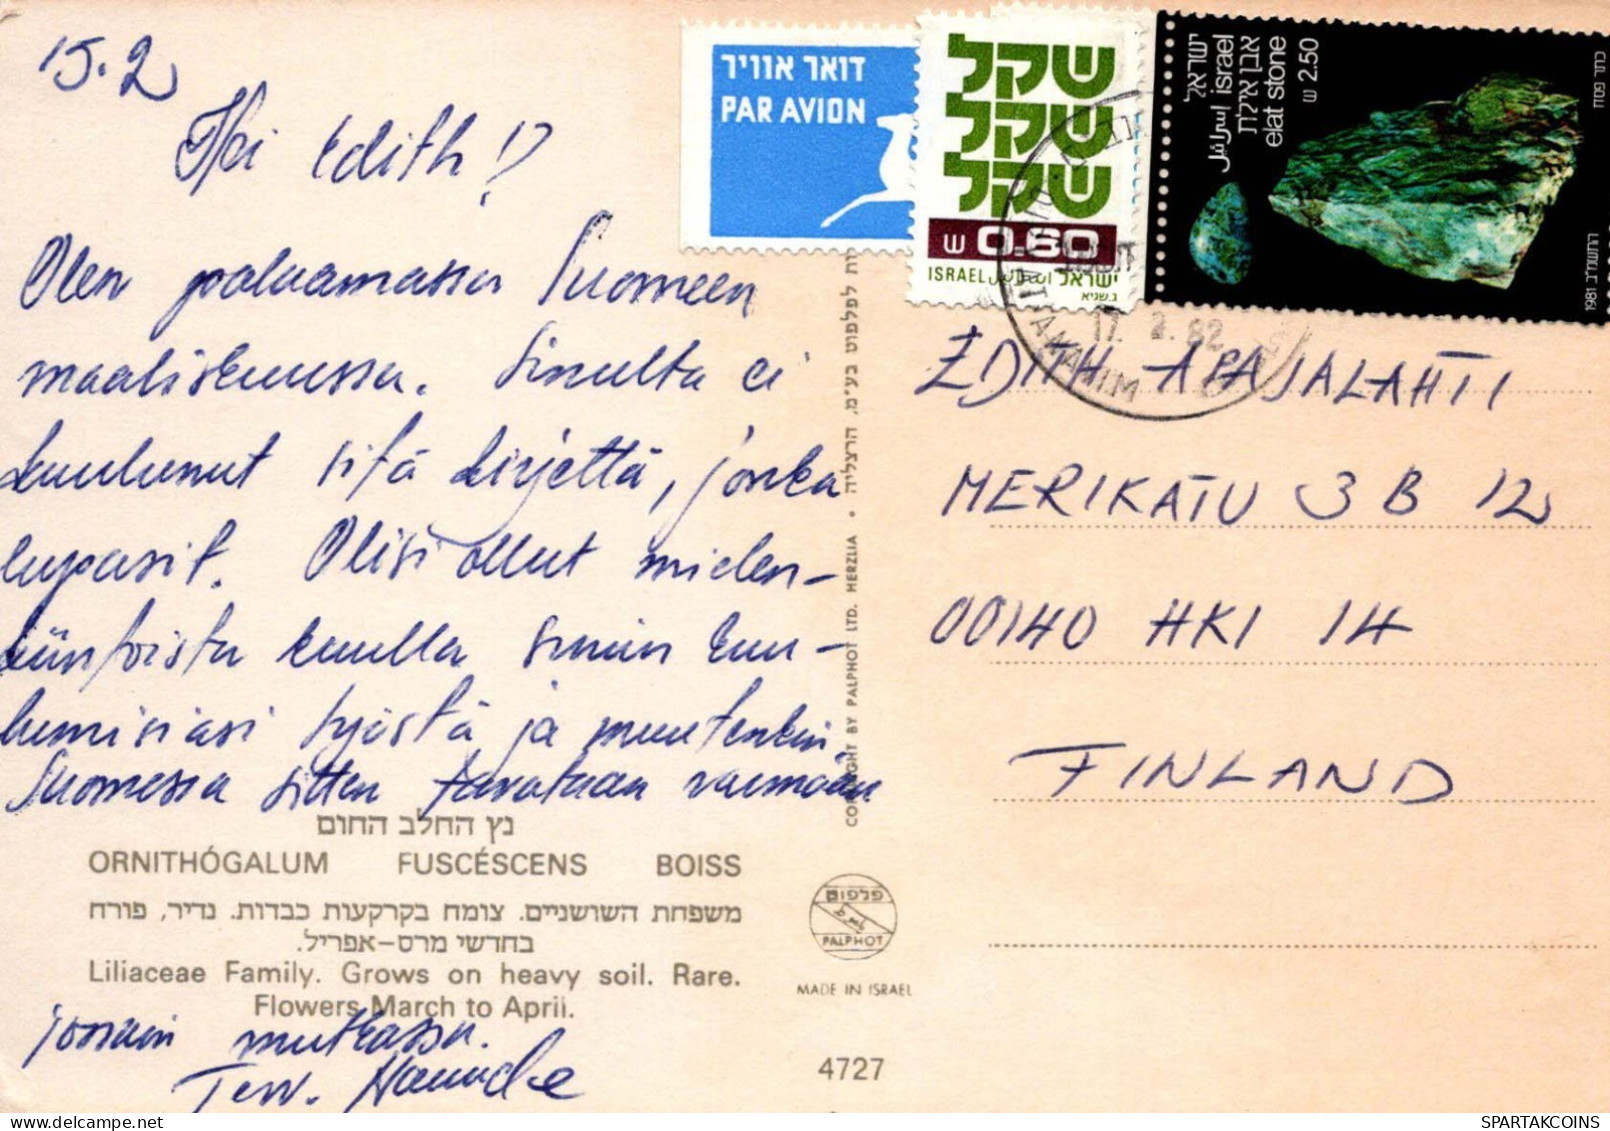 15.2
Hei Edith!
Olen palaamassa Suomeen
maaliskuussa. Sinulta ei
kuulunut sitä kirjettä, jonka
lupasit. Olisi ollut mielen-
kiintoista kuulla sinun kuu-
lumisiasi työstä ja muutenkin.
Suomessa sitten tavataan varmaan
jossain mutkassa.
Terv.
נץ החלב החום
ORNITHÓGALUM FUSCÉSCENS BOISS
משפחת השושניים. צומח בקרקעות כבדות. נדיר, פורח
בחדשי מרס-אפריל.
Liliaceae Family. Grows on heavy soil. Rare.
Flowers March to April.
COPYRIGHT BY PALPHOT LTD. HERZLIA • לפלפוט בע"מ, הרצליה
פלפוט
PALPHOT
MADE IN ISRAEL
4727
דואר אוויר
PAR AVION
שקל
שקל
שקל
ש 0.60
ISRAEL اسرائيل ישראל
ג.שגיא
ישראל
israel اسرائيل
אבן אילת
elat stone
ש 2.50
1981 התשמ"ב
17. 2. 82
EDITH APAJALAHTI
MERIKATU 3 B 12
00140 HKI 14
FINLAND
SPARTAKCOINS